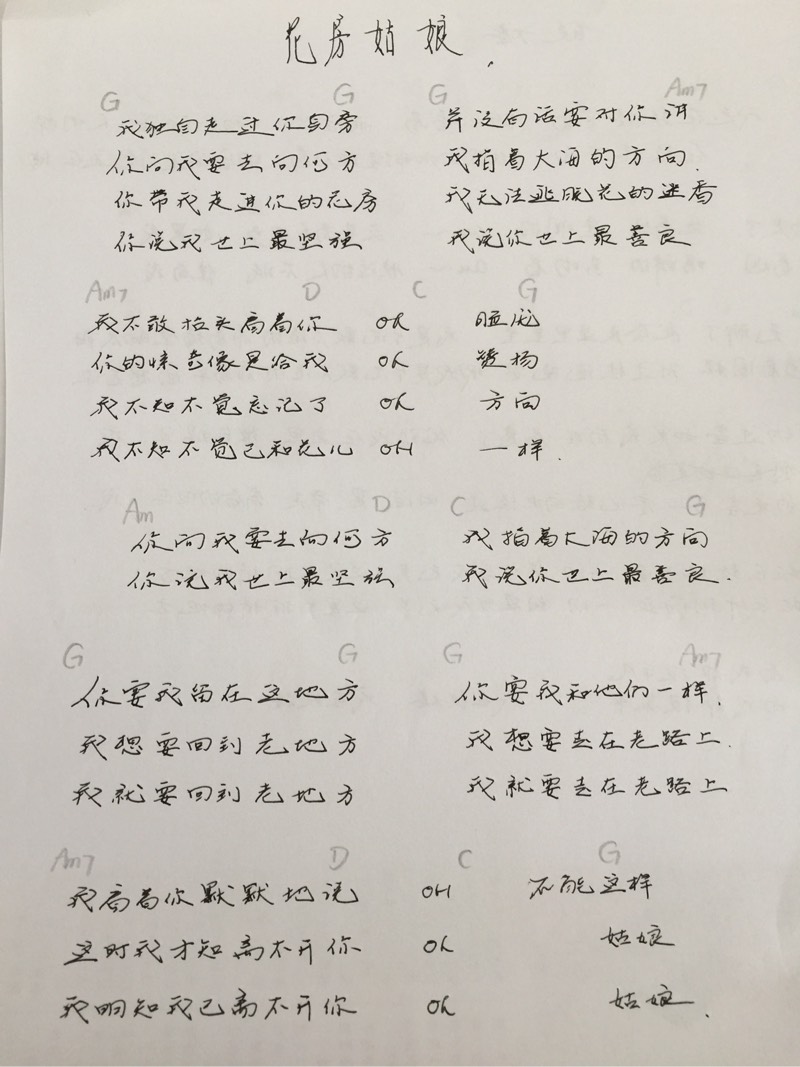 花房姑娘.
G G G Am7
我独自走过你身旁 并没有话要对你讲
你问我要去向何方 我指着大海的方向.
你带我走进你的花房 我无法逃脱花的迷香
你说我世上最坚强 我说你世上最善良
Am7 D C G
我不敢抬头看着你 oh 脸庞
你的惊奇像是给我 oh 赞扬
我不知不觉忘记了 oh 方向
我不知不觉已和花儿 OH 一样.
Am D C G
你问我要去向何方 我指着大海的方向
你说我世上最坚强 我说你世上最善良.
G G G Am7
你要我留在这地方 你要我和他们一样.
我想要回到老地方 我想要走在老路上.
我就要回到老地方 我就要走在老路上
Am7 D C G
我看着你默默地说 OH 不能这样
这时我才知离不开你 oh 姑娘
我明知我已离不开你 oh 姑娘.